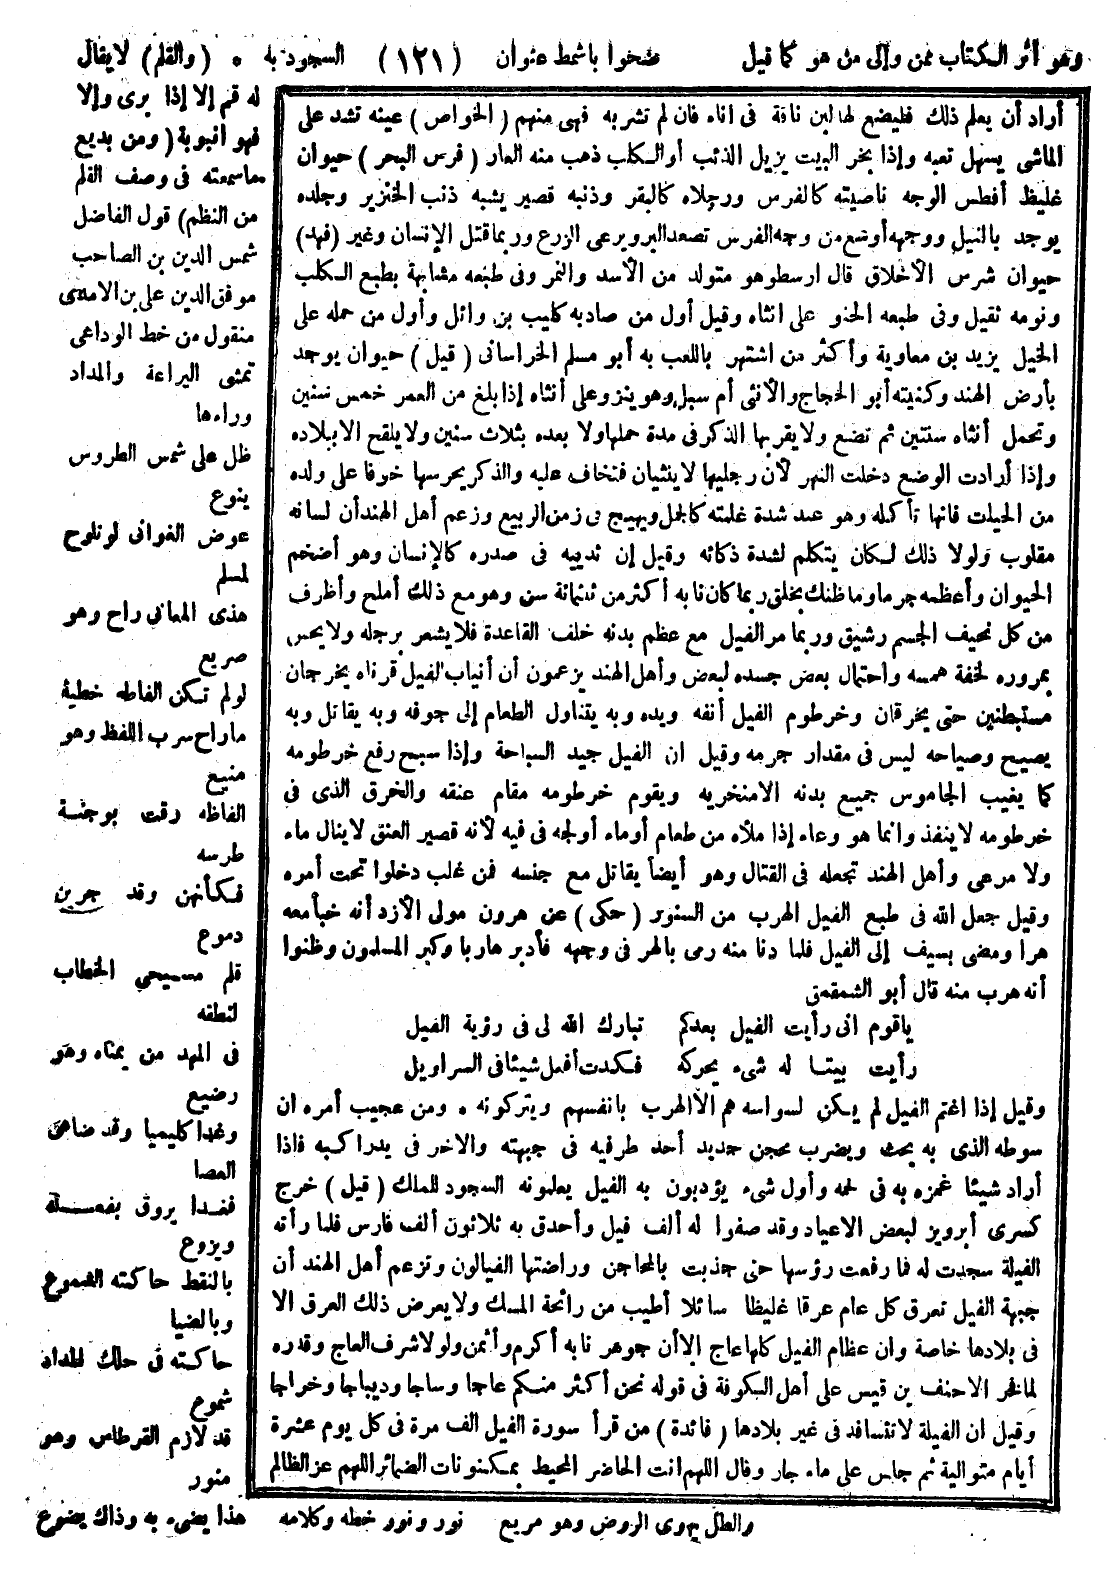 وهو أثر الكتاب بمن وإلى من هو كما قيل ضحوا بأشمط عنوان (١٢١) السجود به • (والقلم) لايقال
أراد أن يعلم ذلك فليضع لها لبن ناقة فى اناء فان لم تشربه فهى منهم (الخواص) عينه تشد على
الماشى يسهل تعبه وإذا بخر البيت بزبل الذئب أوالكلب ذهب منه الفار (فرس البحر) حيوان
غليظ أفطس الوجه ناصيته كالفرس ورجلاه كالبقر وذنبه قصير يشبه ذنب الخنزير وجلده
يوجد بالنيل ووجهه أوسع من وجه الفرس تصعد البر ويرعى الزرع وربما قتل الإنسان وغير (فهد)
حيوان شرس الأخلاق قال ارسطو هو متولد من الأسد والنمر وفى طبعه مشابهة بطبع الكلب
ونومه ثقيل وفى طبعه الحنو على انثاه وقيل أول من صاد به كليب بن وائل وأول من حمله على
الخيل يزيد بن معاوية وأكثر من اشتهر باللعب به أبو مسلم الخراسانى (فيل) حيوان يوجد
بأرض الهند وكنيته أبو الحجاج والأنثى أم سبل وهو ينزو على أنثاه إذا بلغ من العمر خمس سنين
وتحمل أنثاه سنتين ثم تضع ولايقربها الذكر فى مدة حملها ولا بعده بثلاث سنين ولايلقح الا ببلاده
وإذا أرادت الوضع دخلت النهر لأن رجليها لاينثنيان فتخاف عليه والذكر يحرسها خوفا على ولده
من الحيات فانها تأكله وهو عند شدة غلمته كالجمل ويهيج فى زمن الربيع وزعم أهل الهند أن لسانه
مقلوب ولولا ذلك لكان يتكلم لشدة ذكائه وقيل إن ثدييه فى صدره كالإنسان وهو أضخم
الحيوان وأعظمه جرما وما ظنك بخلق ربما كان نابه أكثر من ثلثمائة من وهو مع ذلك أملح وأظرف
من كل نحيف الجسم رشيق وربما مر الفيل مع عظم بدنه خلف القاعدة فلا يشعر برجله ولايحس
بمروره لخفة همسه واحتمال بعض جسده لبعض وأهل الهند يزعمون أن أنياب الفيل قرناه يخرجان
مستبطنين حتى يخرقان وخرطوم الفيل أنفه ويده وبه يتناول الطعام إلى جوفه وبه يقاتل وبه
يصيح وصياحه ليس فى مقدار جرمه وقيل ان الفيل جيد السباحة وإذا سبح رفع خرطومه
كما يغيب الجاموس جميع بدنه الامنخريه ويقوم خرطومه مقام عنقه والخرق الذى فى
خرطومه لاينفذ وانما هو وعاء إذا ملأه من طعام أوماء أولجه فى فيه لأنه قصير العنق لاينال ماء
ولا مرعى وأهل الهند تجعله فى القتال وهو أيضاً يقاتل مع جنسه فمن غلب دخلوا تحت أمره
وقيل جعل الله فى طبع الفيل الهرب من السنور (حكى) عن هرون مولى الأزد أنه خبأ معه
هرا ومضى بسيف إلى الفيل فلما دنا منه رمى بالهر فى وجهه فأدبر هاربا وكبر المسلمون وظنوا
أنه هرب منه قال أبو الشمقمق
ياقوم انى رأيت الفيل بعدكم تبارك الله لى فى رؤية الفيل
رأيت بيتا له شىء يحركه فكدت أفعل شيئا فى السراويل
وقيل إذا اغتم الفيل لم يكن لسواسه هم الا الهرب بانفسهم ويتركونه • ومن عجيب أمره ان
سوطه الذى به يحث ويضرب محجن حديد أحد طرفيه فى جبهته والآخر فى يد راكبه فاذا
أراد شيئا غمزه به فى لحمه وأول شىء يؤدبون به الفيل يعلمونه السجود للملك (قيل) خرج
كسرى أبرويز لبعض الاعياد وقد صفوا له ألف فيل وأحدق به ثلاثون ألف فارس فلما رأته
الفيلة سجدت له فما رفعت رؤسها حتى جذبت بالمحاجن وراضتها الفيالون وتزعم أهل الهند أن
جبهة الفيل تعرق كل عام عرقا غليظا سائلا أطيب من رائحة المسك ولايعرض ذلك العرق الا
فى بلادها خاصة وان عظام الفيل كلها عاج الا أن جوهر نابه أكرم وأثمن ولولا شرف العاج وقدره
لما فخر الاحنف بن قيس على أهل الكوفة فى قوله نحن أكثر منكم عاجا وساجا وديباجا وخراجا
وقيل ان الفيلة لاتتسافد فى غير بلادها (فائدة) من قرأ سورة الفيل الف مرة فى كل يوم عشرة
أيام متوالية ثم جلس على ماء جار وقال اللهم انت الحاضر المحيط بمكنونات الضمائر اللهم عز الظالم
له قلم إلا إذا برى وإلا
فهو انبوبة (ومن بديع
ماسمعته فى وصف القلم
من النظم) قول الفاضل
شمس الدين بن الصاحب
موفق الدين على بن الامدى
منقول من خط الوداعى
تمشى اليراعة والمداد
وراءها
ظل على شمس الطروس
ينوع
عوض الغوانى لو تلوح
لمسلم
هذى المعانى راح وهو
صريع
لولم تكن الفاظه خطية
ماراح سرب اللفظ وهو
منيع
الفاظه رقت بوجنة
طرسه
فكأنهن وقد جرين
دموع
قلم مسيحي الخطاب
لنطقه
فى المهد من يمناه وهو
رضيع
وغدا كليميا وقد ضاهى
العصا
فغدا يروق بفعله
ويروع
بالنقط حاكته الشموع
وبالضيا
حاكته فى حلك المداد
شموع
قد لازم القرطاس وهو
منور
والطل يروى الروض وهو مريع نور ونور خطه وكلامه هذا يضىء به وذاك يضوع